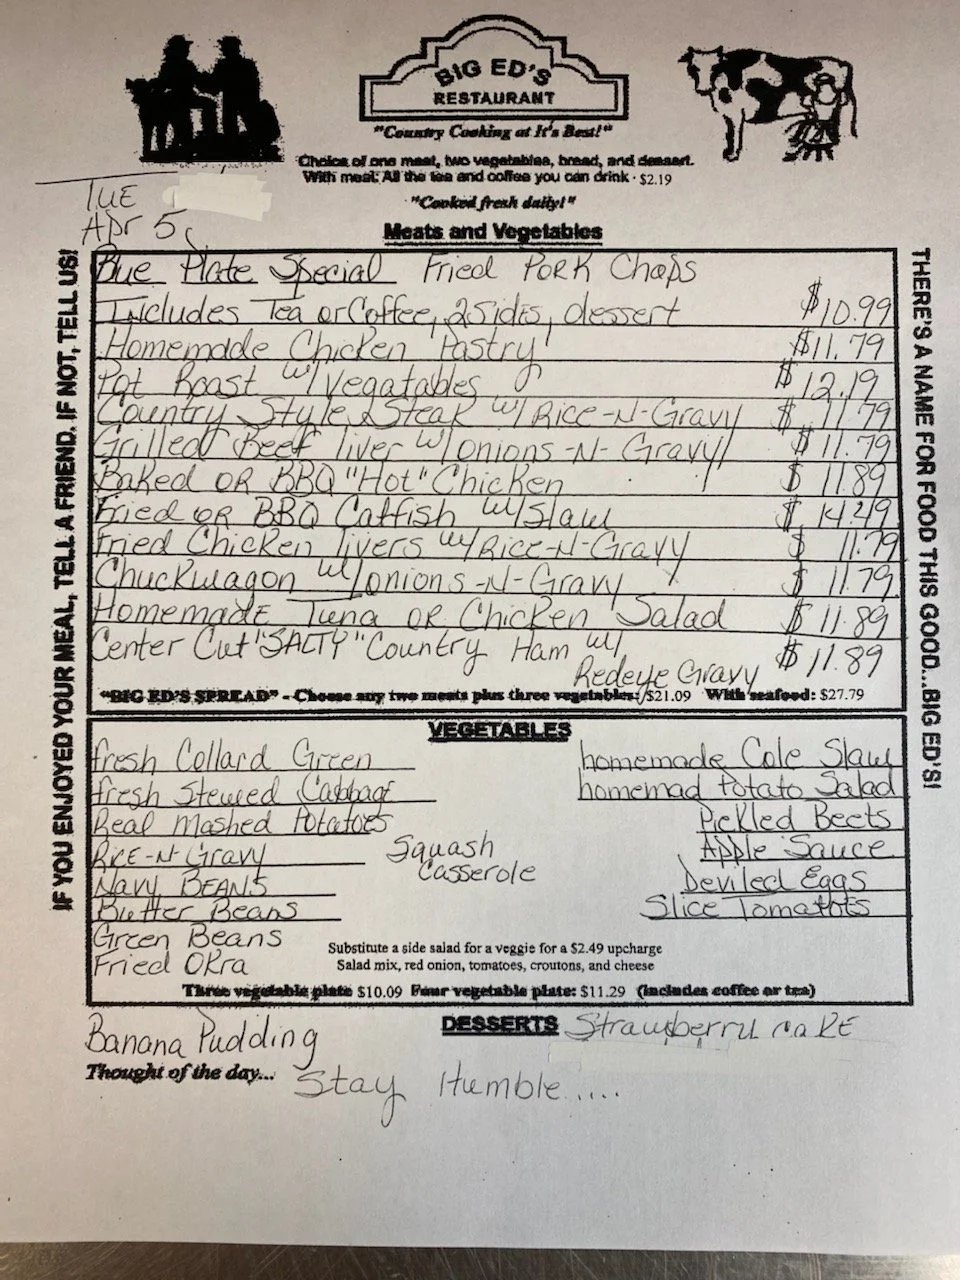 BIG ED'S
RESTAURANT
"Country Cooking at It's Best!"
Choice of one meat, two vegetables, bread, and dessert.
With meal: All the tea and coffee you can drink · $2.19
"Cooked fresh daily!"
TUE
Apr 5
Meats and Vegetables
Blue Plate Special Fried Pork Chops
Includes Tea or Coffee, 2 Sides, dessert $10.99
Homemade Chicken Pastry $11.79
Pot Roast w/Vegatables $12.19
Country Style Steak w/ Rice-N-Gravy $11.79
Grilled Beef liver w/onions-N-Gravy $11.79
Baked OR BBQ "Hot" Chicken $11.89
Fried OR BBQ Catfish w/Slaw $14.49
Fried Chicken livers w/Rice-N-Gravy $11.79
Chuckwagon w/onions-N-Gravy $11.79
Homemade Tuna OR Chicken Salad $11.89
Center Cut "SALTY" Country Ham w/
Redeye Gravy $11.89
"BIG ED'S SPREAD" - Choose any two meats plus three vegetables: $21.09 With seafood: $27.79
IF YOU ENJOYED YOUR MEAL, TELL A FRIEND. IF NOT, TELL US!
THERE'S A NAME FOR FOOD THIS GOOD...BIG ED'S!
VEGETABLES
fresh Collard Green
fresh Stewed Cabbage
Real Mashed Potatoes
Rice-N-Gravy
Navy BEANS
Butter Beans
Green Beans
Fried Okra
Squash
Casserole
homemade Cole Slaw
homemad Potato Salad
Pickled Beets
Apple Sauce
Deviled Eggs
Slice Tomatots
Substitute a side salad for a veggie for a $2.49 upcharge
Salad mix, red onion, tomatoes, croutons, and cheese
Three vegetable plate $10.09 Four vegetable plate: $11.29 (includes coffee or tea)
DESSERTS
Banana Pudding
Strawberry caKE
Thought of the day... Stay Humble.....